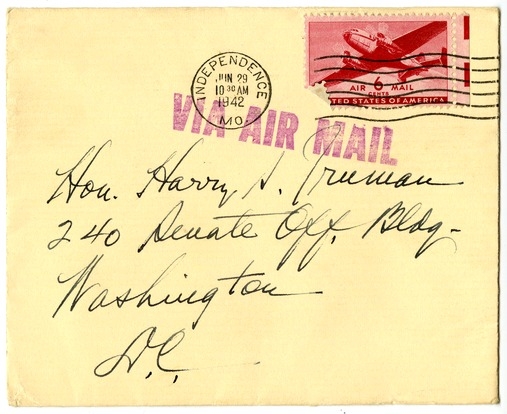 INDEPENDENCE
JUN 29
10 30 AM
1942
MO.
6
CENTS
AIR MAIL
UNITED STATES OF AMERICA
VIA AIR MAIL
Hon. Harry S. Truman
240 Senate Off. Bldg-
Washington
D.C.